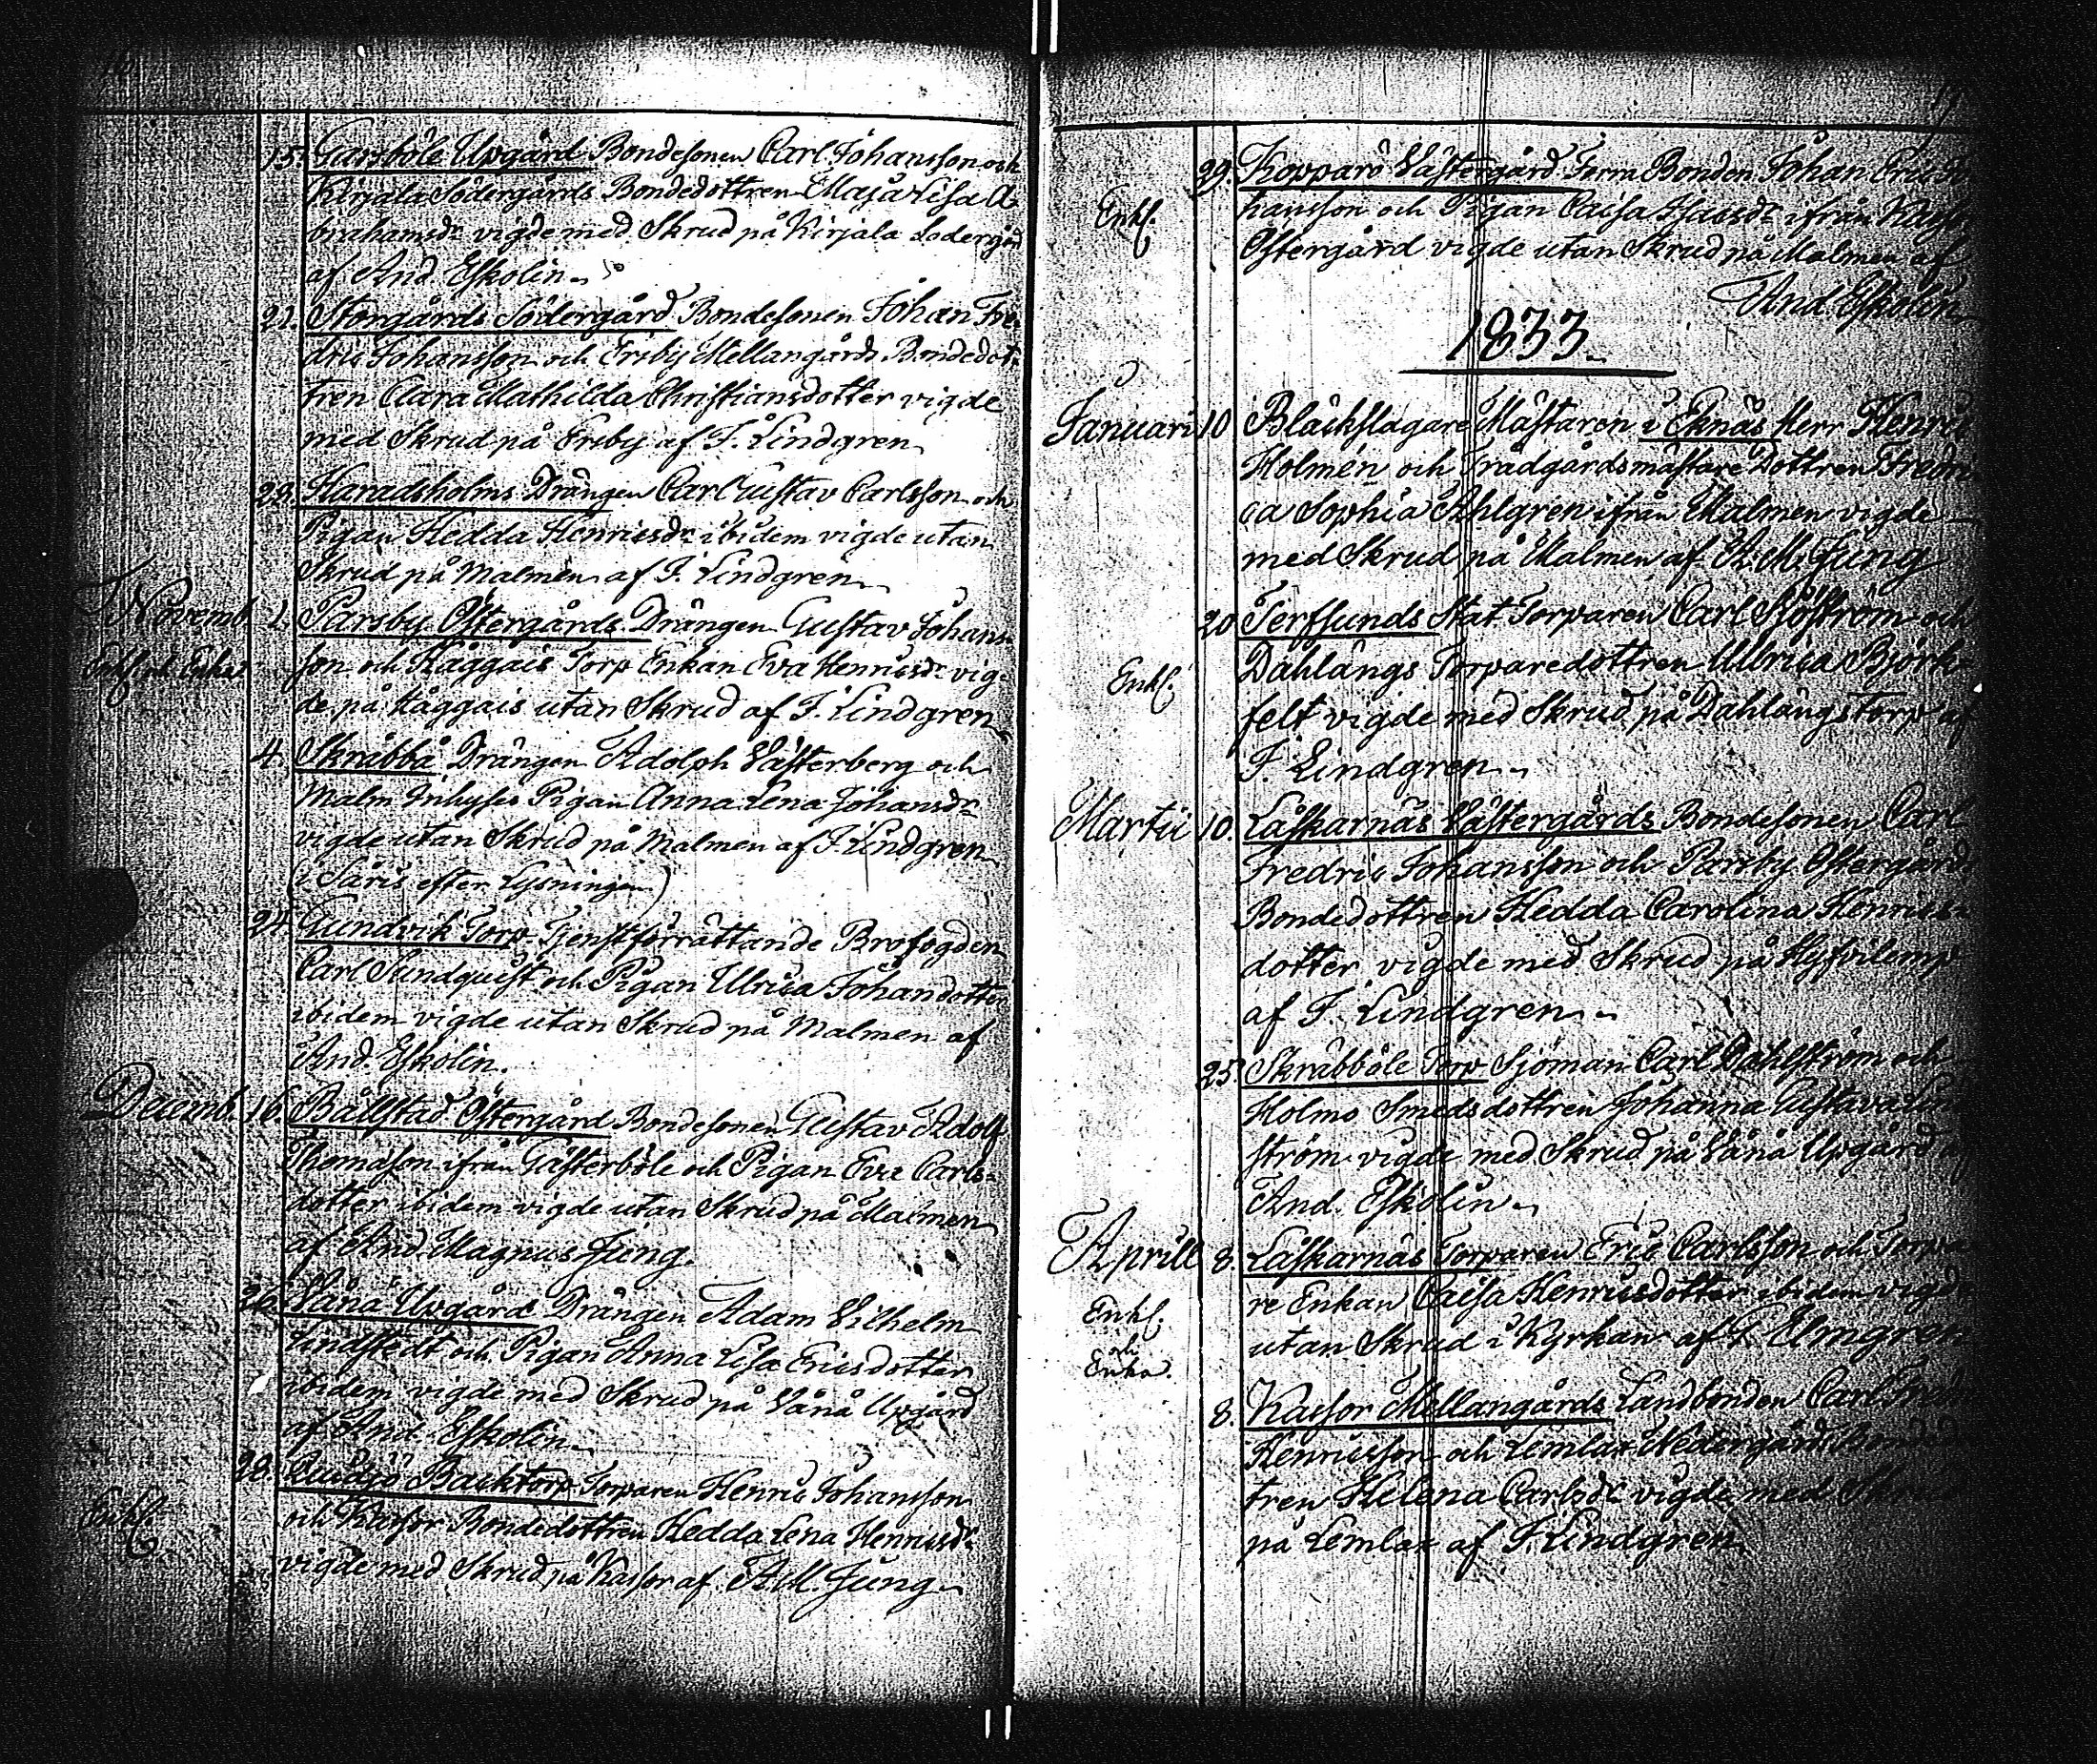 15. Garsböle Upgård Bondesonen Carl Johansson och
Kirjala Södergårds Bondedottren Maja Lisa A-
brahamsdr vigde med Skrud på Kirjala Södergård
af And. Eskolin
21. Storgårds Södergård Bondesonen Johan Fre-
dric Johansson och Ersby Mellangårds Bondedot-
tren Clara Mathilda Christiansdotter vigde
med Skrud på Ersby af F. Lindgren
Haradsholms Drängen Carl Gustav Carlsson och
Pigan Hedda Henricsdr ibidem vigde utan
Skrud på Malmen af F. Lindgren
Novemb. 1. Parsby Östergårds Drängen Gustav Johans-
son och Kåggais Torp Enkan Eva Henricsdr vig-
Enkl. och Enka
de på Kåggais utan Skrud af F. Lindgren
4. Skräbbä Drängen Adolph Västerberg och
Malm Inhyses Pigan Anna Lena Johansdr
vigde utan Skrud på Malmen af F. Lindgren
(i Säris efter Lysningen)
Gundvik Torp Tjenstförrättande Brofogden
Carl Sundquist och Pigan Ulrica Johansdotter
ibidem vigde utan Skrud på Malmen af
And. Eskolin.
Decemb. 16. Bällstad Östergård Bondesonen Gustav Adolf
Thomasson ifrån Gästerböle och Pigan Eva Carls-
dotter ibidem vigde utan Skrud på Malmen
af And. Magnus Jung.
26. Vånå Upgårds Drängen Adam Vilhelm
Lindstedt och Pigan Anna Lisa Ericsdotter
ibidem vigde med Skrud på Vånå Upgård
af And. Eskolin
28. Backtorp Torparen Henric Johansson
Enkl.
och Kassor Bondedottren Hedda Lena Henricsdr
vigde med Skrud på Kassor af A. M. Jung
29. Kopparö Västergård Bonden Johan Eric Jo-
Enkl.
hansson och Pigan Caisa ifrån
Östergård vigde utan Skrud på Malmen af
And. Eskolin
1833
Januari 10 Bläckslagare Mästaren i Eknäs Herr Henric
Holmén och Trädgårdsmästare Dottren Fredri-
ca Sophia Ahlgren ifrån Malmen vigde
med Skrud på Malmen af A. M. Jung
20 Terfsunds Stat Torparen Carl Sjöström och
Enkl.
Dahlängs Torparedottren Ulrica Björk-
felt vigde med Skrud på Dahlängs Torp af
F. Lindgren
Martii 10. Läskarnäs Västergårds Bondesonen Carl
Fredric Johansson och Parsby Östergårds
Bondedottren Hedda Carolina Henrics-
dotter vigde med Skrud på
af F. Lindgren
25. Skräbböle Torp Sjöman Carl Dahlström och
Holmo Smedsdottren Johanna Gustava
ström vigde med Skrud på Vånå Upgård af
And. Eskolin
Aprill 8. Läskarnäs Torparen Eric Carlsson och Torpa-
Enkl. och Enka.
re Enkan Caisa Henricsdotter ibidem vigde
utan Skrud i Kyrkan af Elmgren
8. Kassor Mellangårds Landbonden Carl
Henricsson och Lemlax Nedergårds
tren Helena Carlsdr vigde med
på Lemlax af F. Lindgren